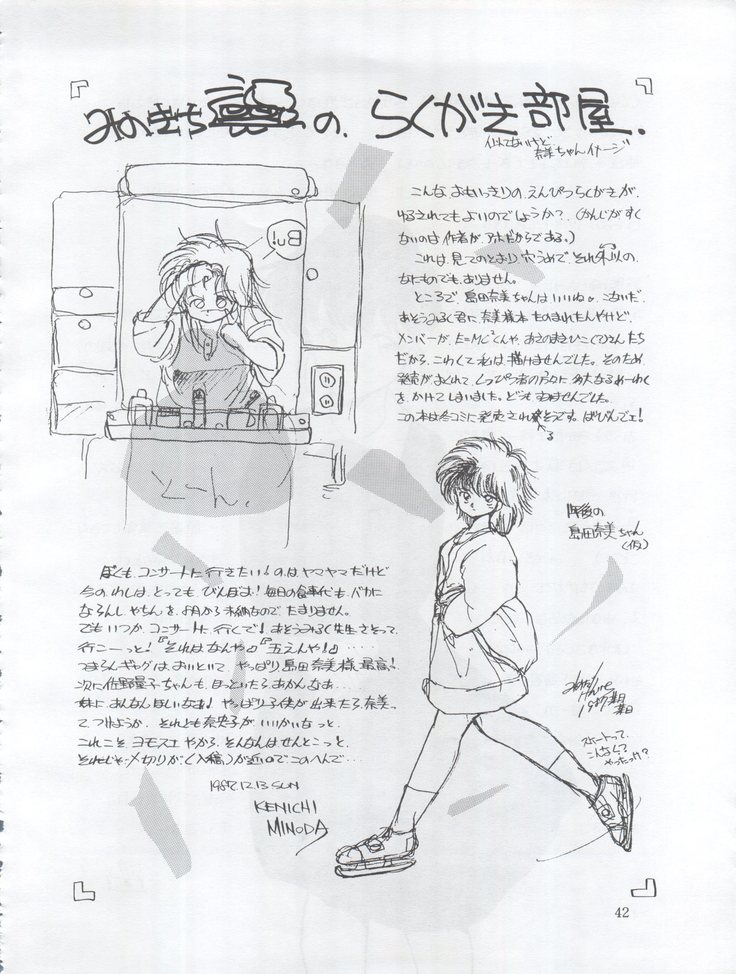 みのきち の、らくがき部屋.
似てないけど
奈美ちゃんイメージ
こんな おもいっきりの えんぴつらくがきが、
ゆるされてもよいのでしょうか？(かんじがすく
ないのは 作者が、アホだからである。)
これは、見てのとおり 穴うめで それ以外の
なにものでも、ありません。
ところで、島田奈美ちゃんはいいね。こないだ、
あそうみるく君に、奈美様本 たのまれたんやけど、
メンバーが、E=MC²くんや、
だから、こわくて 私は、描けませんでした。そのため
発売が、おくれて、しっぴつ者の方々に 多大なるめーわく
を、かけてしまいました。どうも すみませんでした。
この本は冬コミに 発売されそうです。ばびんでェ！
る
じーっ.
1年後の
島田奈美ちゃん
(仮)
ぼくも、コンサートに行きたい！のは、ヤマヤマだけど
今の、わしは、とっても、びんぼぉ！毎日の食事代も、バカに
ならんし やちんを、8月から 未納なので たまりません。
でも いつか、コンサートに、行くで！あそうみるく先生さそって、
行こーっと！『それはなんや♪』『五えんや！♪』‥‥‥
つまらんギャグは、おいといて、やっぱり 島田奈美様、最高！
次に佐野量子ちゃんも、ほっといたら、あかんなあ‥‥
妹に、あんなんほしいなぁ！やっぱり 子供が出来たら、奈美っ
て、つけようか、それとも 奈央子が、いいかいなっと、
これこそ ヨモスエ やから、そんなんは せんとこっと、
それじゃ、〆切りが、(入稿、)が近いので このへんで‥‥
1987.12.13 SUN
KENICHI
MINODA
1987
スケートって、
こんなん？
やったっけ？
42